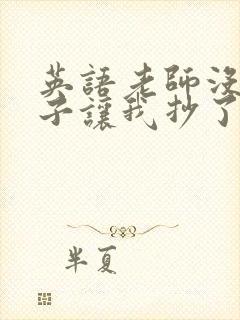 英語老師沒
子讓我抄了
半夏